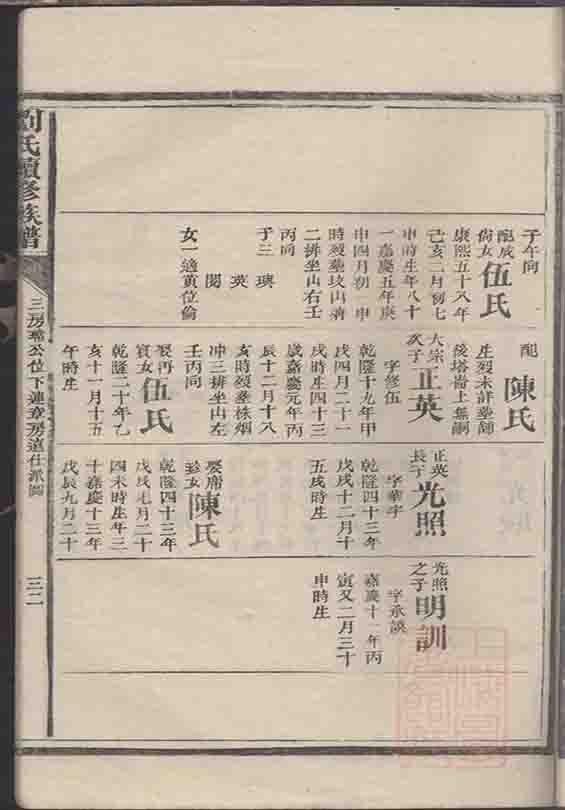 子午向
配成尙女伍氏
康熙五十八年
己亥二月初七
申時生年八十
一嘉慶五年庚
申四月初一申
時歿塟坟山
二排坐山右壬
丙向
子三
英
閔
女一適黃位倫
配陳氏
生歿未詳塟
後塔崙上無嗣
大宗次子正英
字修伍
乾隆十九年甲
戌四月二十一
戌時生四十三
歲嘉慶元年丙
辰十二月十八
亥時歿塟株烟
冲三排坐山左
壬丙向
娶再賓女伍氏
乾隆二十年乙
亥十一月十五
午時生
正英長子光照
字華宇
乾隆四十三年
戊戌十二月十
五戌時生
娶席珍女陳氏
乾隆四十三年
戊戌七月二十
四未時生年三
十嘉慶十三年
戊辰九月二十
光照之子明訓
字承謨
嘉慶十一年丙
寅又二月三十
申時生
劉氏續修族譜
三房公位下連章房遠仕派圖
三二